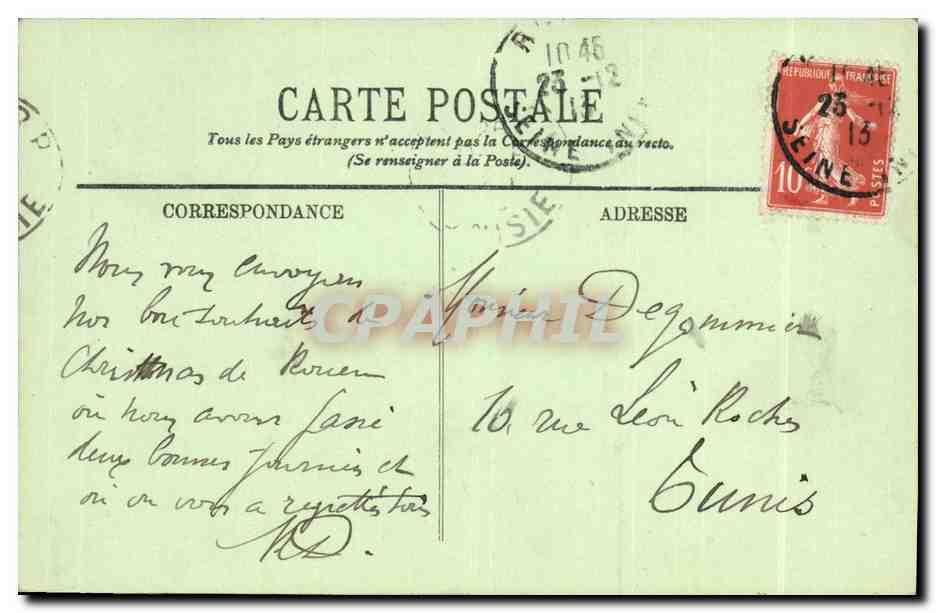 CARTE POSTALE
Tous les Pays étrangers n'acceptent pas la Correspondance au recto.
(Se renseigner à la Poste).
REPUBLIQUE FRANÇAISE
10
POSTES
10 45
23 -12
13
SEINE
15 45
23 -1
13
SEINE
CORRESPONDANCE
ADRESSE
Nous vous envoyons
nos bons souhaits de
Christmas de Rouen
où nous avons passé
deux bonnes journées et
où on vous a regrettés tous
MD.
Monsieur Degommier
10, rue Léon Roches
Tunis
CPAPHIL